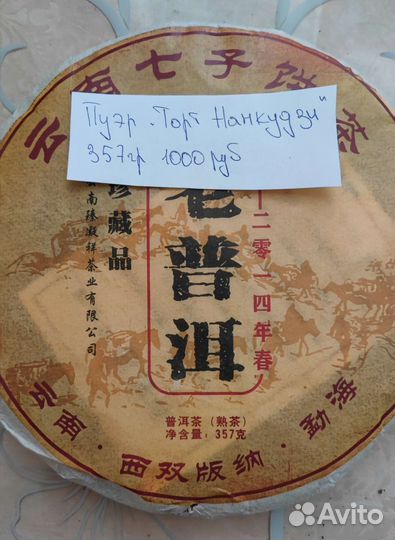 云南七子饼茶
Пуэр. Торт Нанкудзй
357гр 1000 руб
老普洱
珍藏品
云南臻凝祥茶业有限公司
二零一四年春
普洱茶（熟茶）
净含量：357克
云南·西双版纳·勐海
Avito